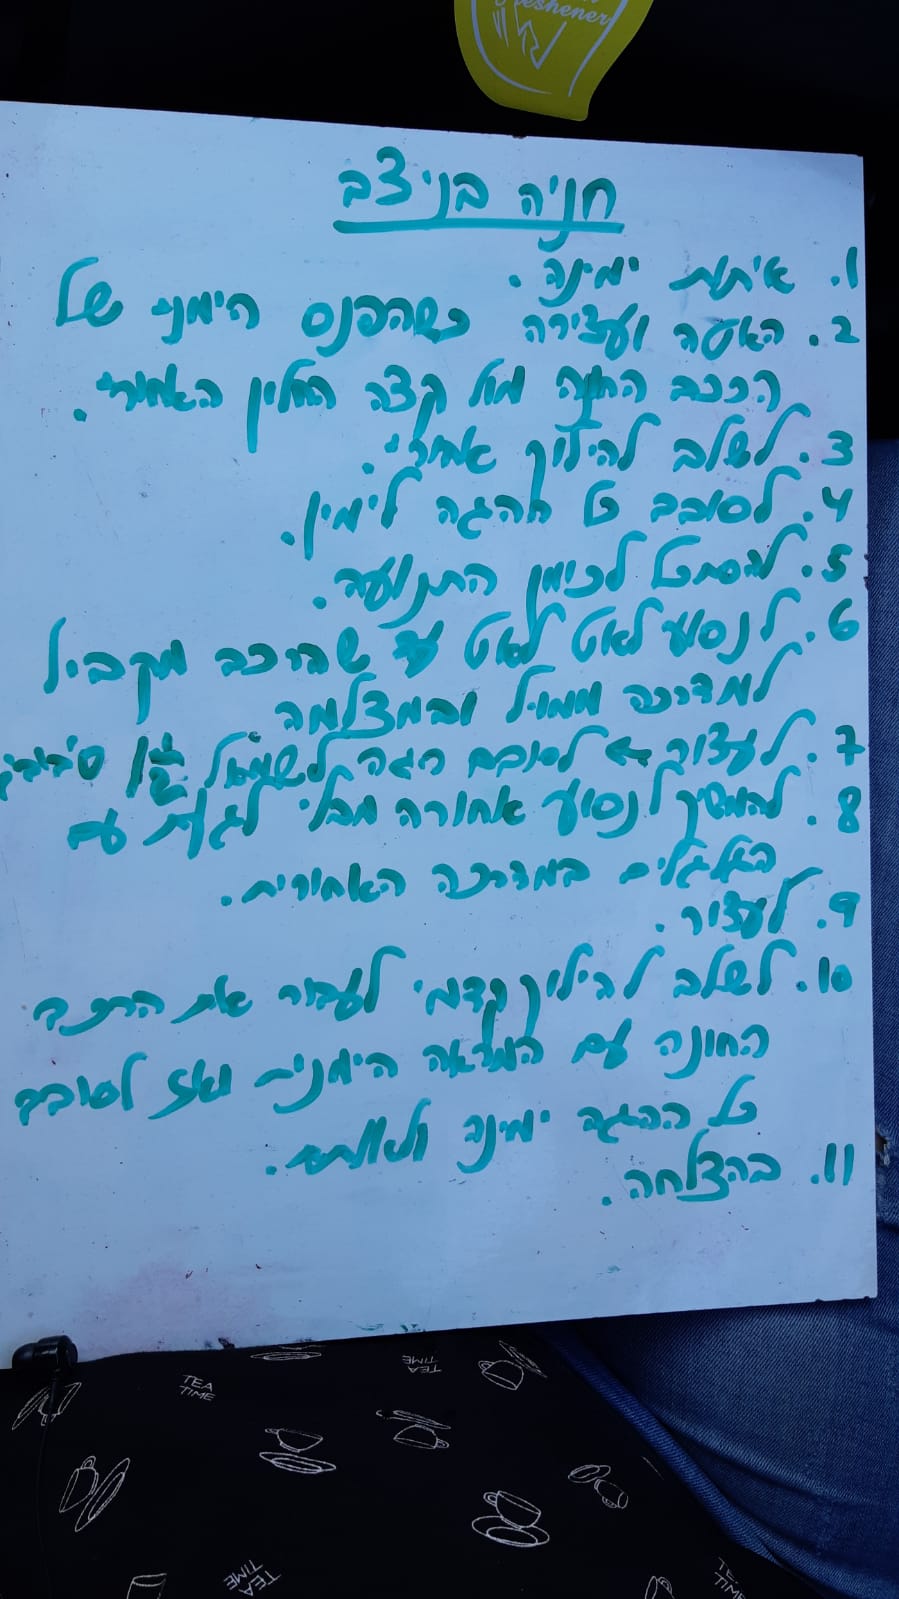 freshener
חניה בניצב
1. איתות ימינה.
2. האטה ועצירה כשהפנס הימני של
הרכב החונה מול קצה החלון האחורי.
3. לשלב להילוך אחורי.
4. לסובב כל ההגה לימין.
5. להסתכל לכיוון התנועה.
6. לנסוע לאט לאט עד שהרכב מקביל
למדרכה ממול ובמצלמה
7. לעצור → לסובב הגה לשמאל סיבוב
8. להמשיך לנסוע אחורה מבלי לגעת עם
הגלגלים במדרכה האחורית.
9. לעצור.
10. לשלב להילוך קדמי לעבור את הרכב
החונה עם המראה הימנית ואז לסובב
כל ההגה ימינה ולצאת.
11. בהצלחה.
TEA TIME
TEA TIME
TEA TIME
TEA TIME